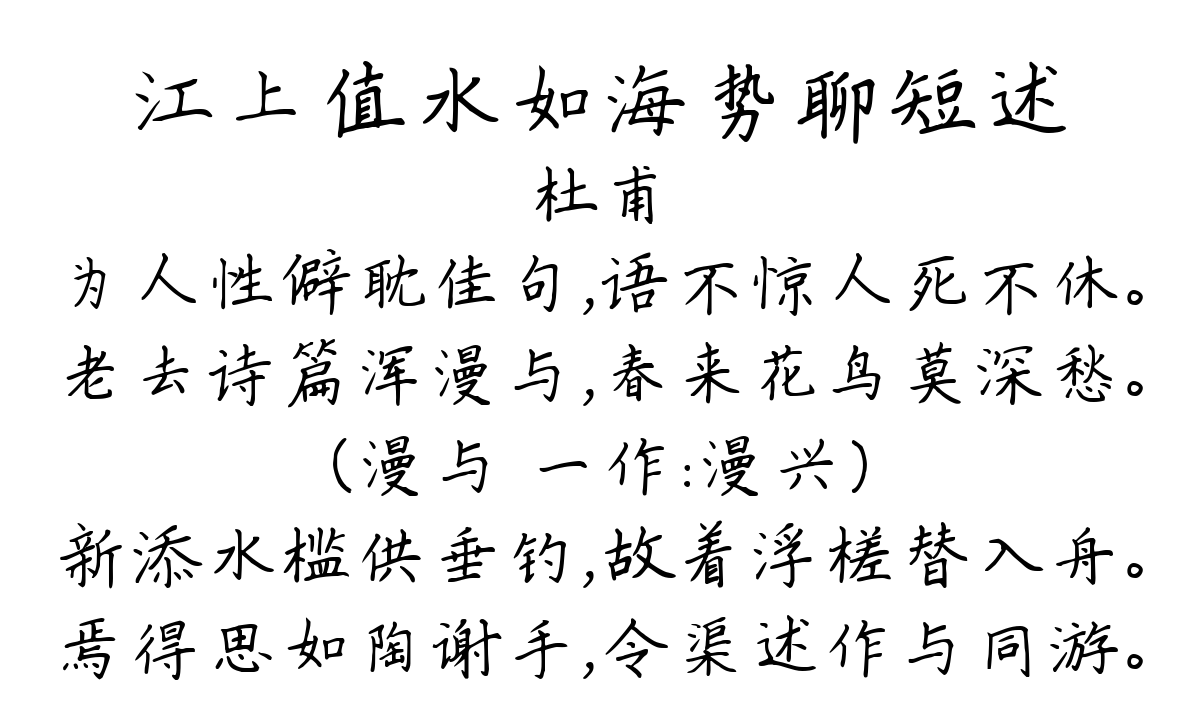 江上值水如海势聊短述
杜甫
为人性僻耽佳句,语不惊人死不休。
老去诗篇浑漫与,春来花鸟莫深愁。
(漫与 一作:漫兴)
新添水槛供垂钓,故着浮槎替入舟。
焉得思如陶谢手,令渠述作与同游。